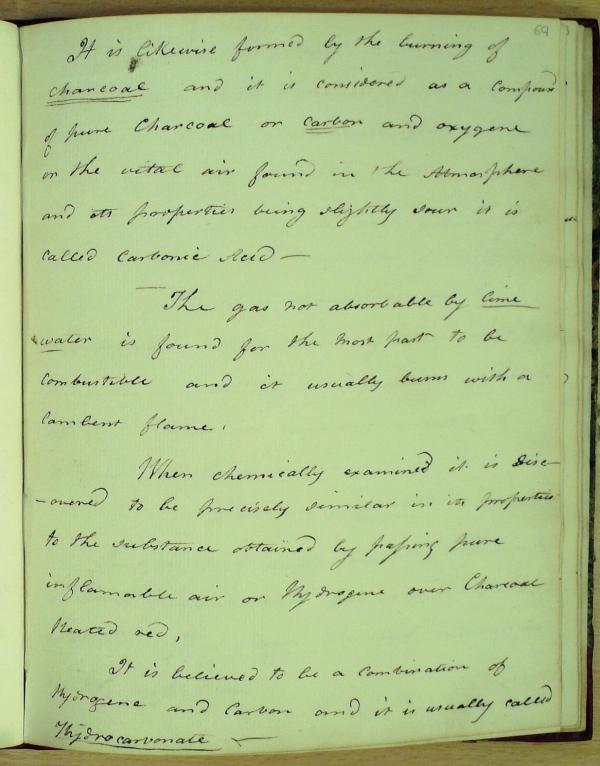 69
It is likewise formed by the burning of
charcoal and it is considered as a compound
of pure Charcoal or Carbon and oxygene
or the vital air found in the Atmosphere
and its properties being slightly sour it is
called Carbonic Acid —
The gas not absorbable by lime
water is found for the most part to be
combustible and it usually burns with a
lambent flame.
When chemically examined it is disc-
-overed to be precisely similar in its properties
to the substance obtained by passing pure
inflamable air or Hydrogene over Charcoal
Heated red,
It is believed to be a combination of
Hydrogene and Carbon and it is usually called
Hydrocarbonate —